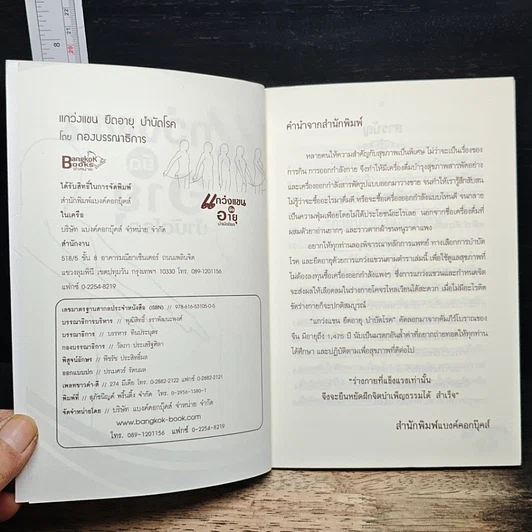 แกว่งแขน ยืดอายุ บำบัดโรค
โดย กองบรรณาธิการ
Bangkok
Books
ได้รับสิทธิ์ในการจัดพิมพ์
สำนักพิมพ์แบงค์คอกบุ๊คส์
ในเครือ
บริษัท แบงค์คอกบุ๊คส์ จำหน่าย จำกัด
สำนักงาน
518/5 ชั้น 8 อาคารมณียาเซ็นเตอร์ ถนนเพลินจิต
แขวงลุมพินี เขตปทุมวัน กรุงเทพฯ 10330 โทร. 089-1201156
แฟกซ์ 0-2254-8219
แกว่งแขน
ยืด
อายุ
บำบัดโรค
เลขมาตรฐานสากลประจำหนังสือ (ISBN) // 978-616-53105-0-5
บรรณาธิการบริหาร //
บรรณาธิการ // บรรหาร ทิบประบุตร
กองบรรณาธิการ // วัลภา ประเสริฐศิลา
พิสูจน์อักษร // พีรรัช ประสิทธิ์ผล
ออกแบบปก // ปรเมศวร์ รัตนผล
เพลทขาวดำ-สี // 274 มีเดีย โทร. 0-2882-2122 แฟกซ์ 0-2882-2121
พิมพ์ที่ // สุภัชนิญค์ พริ้นติ้ง จำกัด โทร.
จัดจำหน่ายโดย // บริษัท แบงค์คอกบุ๊คส์ จำหน่าย จำกัด
www.bangkok-book.com
โทร. 089-1201156 แฟกซ์ 0-2254-8219
คำนำจากสำนักพิมพ์
หลายคนให้ความสำคัญกับสุขภาพเป็นพิเศษ ไม่ว่าจะเป็นเรื่องของ
การกิน การออกกำลังกาย จึงทำให้มีเครื่องดื่มบำรุงสุขภาพสารพัดอย่าง
และเครื่องออกกำลังสารพัดรูปแบบออกมาวางขาย จนทำให้เรารู้สึกสับสน
ไม่รู้ว่าจะซื้ออะไรมาดื่มดี หรือจะซื้อเครื่องออกกำลังแบบไหนดี จนกลาย
เป็นความฟุ่มเฟือยโดยไม่ได้ประโยชน์อะไรเลย นอกจากชื่อเครื่องดื่มที่
ผสมตัวยาอ่านยากๆ และราคาค่าตัวขนหนูราคาแพง
อยากให้ทุกท่านลองพิจารณาหลักการแพทย์ ทางเลือกการบำบัด
โรค และยืดอายุด้วยการแกว่งแขนตามตำราเล่มนี้ เพื่อใช้ดูแลสุขภาพที่
ไม่ต้องลงทุนซื้อเครื่องออกกำลังแพงๆ ซึ่งการแกว่งแขนและกำหนดจิต
จะส่งผลให้เลือดลมในร่างกายไหลเวียนได้สะดวก เมื่อไม่มีอะไรติด
ขัดร่างกายก็จะปกติสมบูรณ์
"แกว่งแขน ยืดอายุ บำบัดโรค" คัดลอกมาจากคัมภีร์โบราณของ
จีน มีอายุถึง 1,475 ปี นับเป็นมรดกอันล้ำค่าที่อยากถ่ายทอดให้ทุกท่าน
ได้ศึกษา และปฏิบัติตามเพื่อสุขภาพที่ดีต่อไป
"ร่างกายที่แข็งแรงเท่านั้น
จึงจะยืนหยัดฝึกจิตบำเพ็ญธรรมได้ สำเร็จ"
สำนักพิมพ์แบงค์คอกบุ๊คส์